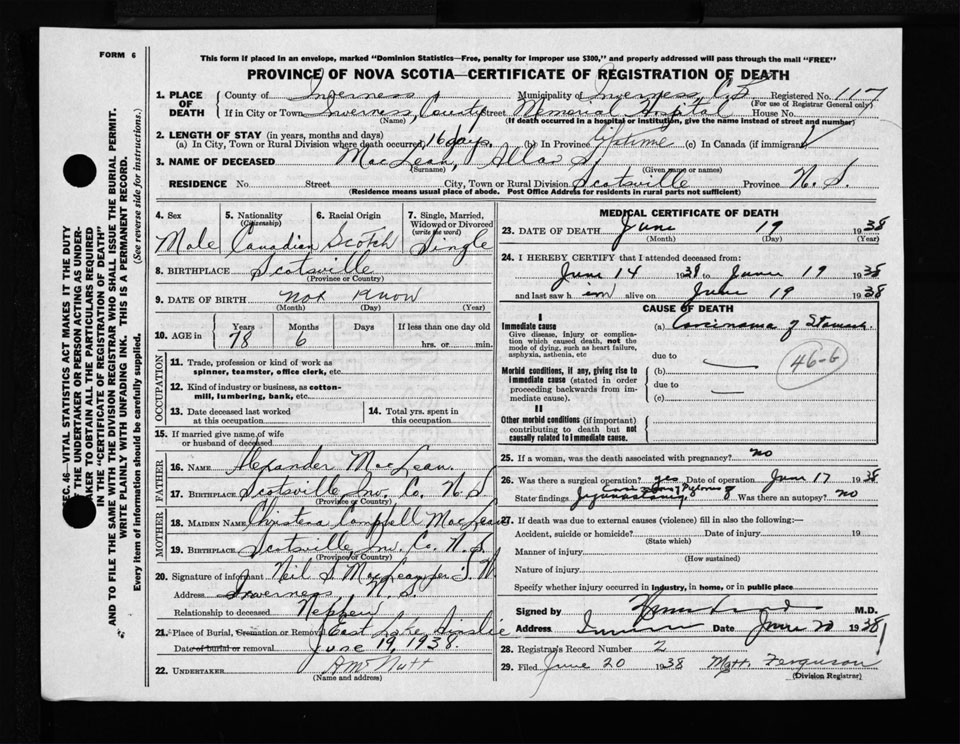 FORM 6
This form if placed in an envelope, marked "Dominion Statistics—Free, penalty for improper use $300," and properly addressed will pass through the mail "FREE"
PROVINCE OF NOVA SCOTIA—CERTIFICATE OF REGISTRATION OF DEATH
1. PLACE OF DEATH
County of Inverness Municipality of Inverness, Co. Registered No. 117
(For use of Registrar General only)
If in City or Town Inverness, County Street Memorial Hospital House No.
(Name) (If death occurred in a hospital or institution, give the name instead of street and number)
2. LENGTH OF STAY (in years, months and days)
(a) In City, Town or Rural Division where death occurred, 16 days. (b) In Province lifetime (c) In Canada (if immigrant)
3. NAME OF DECEASED MacLean, Allan S.
(Surname) (Given name or names)
RESIDENCE No. Street City, Town or Rural Division Scotsville Province N. S.
(Residence means usual place of abode. Post Office Address for residents in rural parts not sufficient)
4. Sex Male
5. Nationality (Citizenship) Canadian
6. Racial Origin Scotch
7. Single, Married, Widowed or Divorced (write the word) Single
8. BIRTHPLACE Scotsville
(Province or Country)
9. DATE OF BIRTH not know
(Month) (Day) (Year)
10. AGE in Years 78 Months 6 Days If less than one day old hrs. or min.
OCCUPATION
11. Trade, profession or kind of work as spinner, teamster, office clerk, etc.
12. Kind of industry or business, as cotton-mill, lumbering, bank, etc.
13. Date deceased last worked at this occupation
14. Total yrs. spent in this occupation
15. If married give name of wife or husband of deceased
FATHER
16. NAME Alexander MacLean.
17. BIRTHPLACE Scotsville Inv. Co. N. S.
(Province or Country)
MOTHER
18. MAIDEN NAME Christena Campbell MacLean
19. BIRTHPLACE Scotsville Inv. Co. N. S.
(Province or Country)
20. Signature of informant Neil S MacLean
Address Inverness N. S.
Relationship to deceased Nephew
21. Place of Burial, Cremation or Removal East Lake Ainslie
Date of burial or removal June 19, 1938.
22. UNDERTAKER D McNutt
(Name and address)
MEDICAL CERTIFICATE OF DEATH
23. DATE OF DEATH June 19 1938
(Month) (Day) (Year)
24. I HEREBY CERTIFY that I attended deceased from:
June 14 1938 to June 19 1938
and last saw him alive on June 19 1938
CAUSE OF DEATH
I
Immediate cause
Give disease, injury or complication which caused death, not the mode of dying, such as heart failure, asphyxia, asthenia, etc
(a) Carcinoma of Stomach.
due to
Morbid conditions, if any, giving rise to immediate cause (stated in order proceeding backwards from immediate cause).
(b)
due to
(c)
46-6
II
Other morbid conditions (if important) contributing to death but not causally related to immediate cause.
25. If a woman, was the death associated with pregnancy? no
26. Was there a surgical operation? yes Date of operation June 17 1938
State findings Carcinoma of Pylorus Was there an autopsy? no
27. If death was due to external causes (violence) fill in also the following:—
Accident, suicide or homicide? Date of injury 19
(State which)
Manner of injury
(How sustained)
Nature of injury
Specify whether injury occurred in industry, in home, or in public place
Signed by M.D.
Address Date June 20 1938
28. Registrar's Record Number 2
29. Filed June 20 1938 Ferguson
(Division Registrar)
SEC. 46—VITAL STATISTICS ACT MAKES IT THE DUTY
OF THE UNDERTAKER OR PERSON ACTING AS UNDER-
TAKER TO OBTAIN ALL THE PARTICULARS REQUIRED
IN THE "CERTIFICATE OF REGISTRATION OF DEATH"
AND TO FILE THE SAME WITH THE DIVISION REGISTRAR WHO SHALL ISSUE THE BURIAL PERMIT.
WRITE PLAINLY WITH UNFADING INK. THIS IS A PERMANENT RECORD.
Every item of information should be carefully supplied. (See reverse side for instructions.)